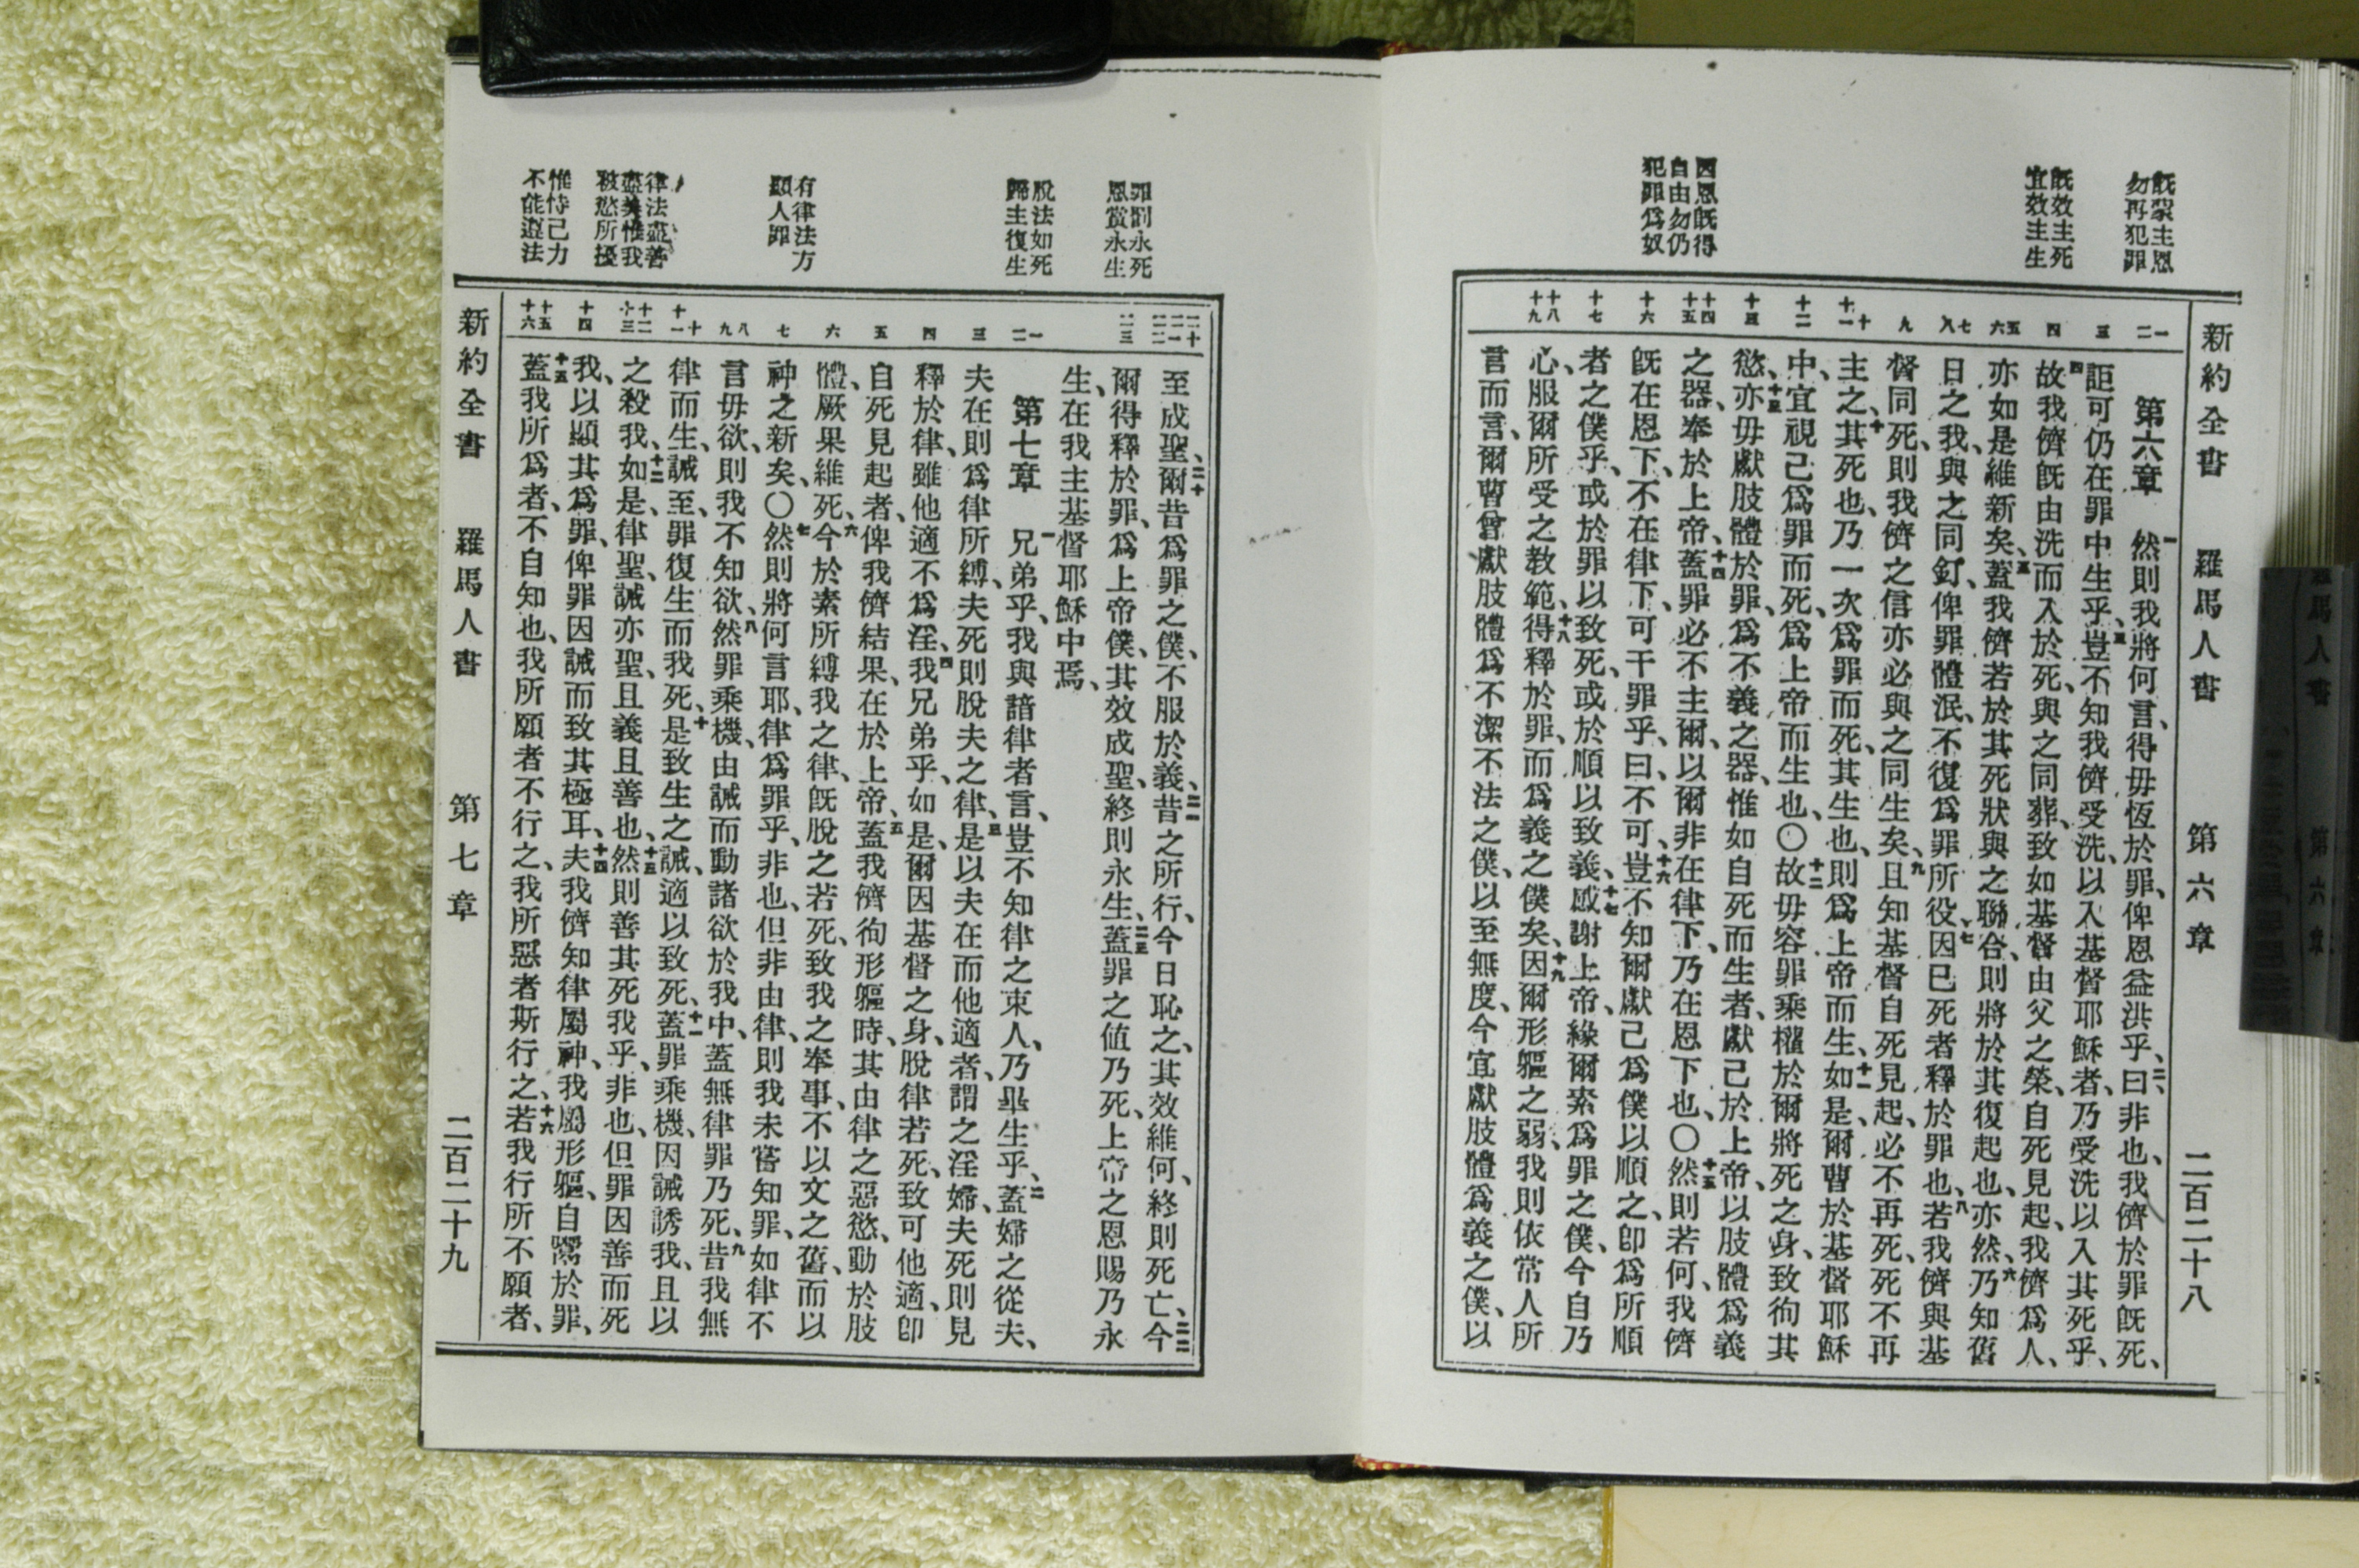 新約全書 羅馬人書 第六章 二百二十八
既蒙主恩
勿再犯罪
既效主死
宜效主生
因恩既得
自由勿仍
犯罪爲奴
一
二
三
四
五
六
七
八
九
十
十一
十二
十三
十四
十五
十六
十七
十八
十九
第六章 一然則我將何言、得毋恆於罪、俾恩益洪乎、二曰、非也、我儕於罪旣死、
詎可仍在罪中生乎、三豈不知我儕受洗、以入基督耶穌者、乃受洗以入其死乎、
四故我儕旣由洗而入於死、與之同葬、致如基督由父之榮、自死見起、我儕爲人、
亦如是維新矣、五蓋我儕若於其死狀與之聯合、則將於其復起也亦然、六乃知舊
日之我、與之同釘、俾罪體泯、不復爲罪所役、七因已死者釋於罪也、八若我儕與基
督同死、則我儕之信亦必與之同生矣、九且知基督自死見起、必不再死、死不再
主之、十其死也、乃一次爲罪而死、其生也、則爲上帝而生、十一如是、爾曹於基督耶穌
中、宜視己爲罪而死、爲上帝而生也、〇十二故毋容罪乘權於爾將死之身、致徇其
慾、十三亦毋獻肢體於罪、爲不義之器、惟如自死而生者、獻己於上帝、以肢體爲義
之器、奉於上帝、十四蓋罪必不主爾、以爾非在律下、乃在恩下也、〇十五然則若何、我儕
旣在恩下、不在律下、可干罪乎、曰、不可、十六豈不知爾獻己爲僕以順之、卽爲所順
者之僕乎、或於罪以致死、或於順以致義、十七感謝上帝、緣爾素爲罪之僕、今自乃
心、服爾所受之教範、十八得釋於罪、而爲義之僕矣、十九因爾形軀之弱、我則依常人所
言而言、爾曹曾獻肢體爲不潔不法之僕、以至無度、今宜獻肢體爲義之僕、以
罪罰永死
恩賞永生
脫法如死
歸主復生
有律法方
顯人罪
律法盡善
盡美惟我
被慾所擾
惟恃己力
不能遵法
二十
二一
二二
二三
一
二
三
四
五
六
七
八
九
十
十一
十二
十三
十四
十五
十六
至成聖、二十爾昔爲罪之僕、不服於義、二一昔之所行、今日恥之、其效維何、終則死亡、二二今
爾得釋於罪、爲上帝僕、其效成聖、終則永生、二三蓋罪之値乃死、上帝之恩賜乃永
生、在我主基督耶穌中焉、
第七章 一兄弟乎、我與諳律者言、豈不知律之束人、乃畢生乎、二蓋婦之從夫、
夫在則爲律所縛、夫死則脫夫之律、三是以夫在而他適者、謂之淫婦、夫死則見
釋於律、雖他適不爲淫、四我兄弟乎、如是、爾因基督之身、脫律若死、致可他適、卽
自死見起者、俾我儕結果、在於上帝、五蓋我儕徇形軀時、其由律之惡慾、動於肢
體、厥果維死、六今於素所縛我之律、旣脫之若死、致我之奉事、不以文之舊、而以
神之新矣、〇七然則將何言耶、律爲罪乎、非也、但非由律、則我未嘗知罪、如律不
言毋欲、則我不知欲、八然罪乘機、由誡而動諸欲於我中、蓋無律罪乃死、九昔我無
律而生、誡至、罪復生而我死、十是致生之誡、適以致死、十一蓋罪乘機、因誡誘我、且以
之殺我、十二如是、律聖、誡亦聖、且義且善也、十三然則善其死我乎、非也、但罪因善而死
我、以顯其爲罪、俾罪因誡而致其極耳、十四夫我儕知律屬神、我屬形軀、自鬻於罪、
十五蓋我所爲者、不自知也、我所願者不行之、我所惡者斯行之、十六若我行所不願者、
新約全書 羅馬人書 第七章 二百二十九